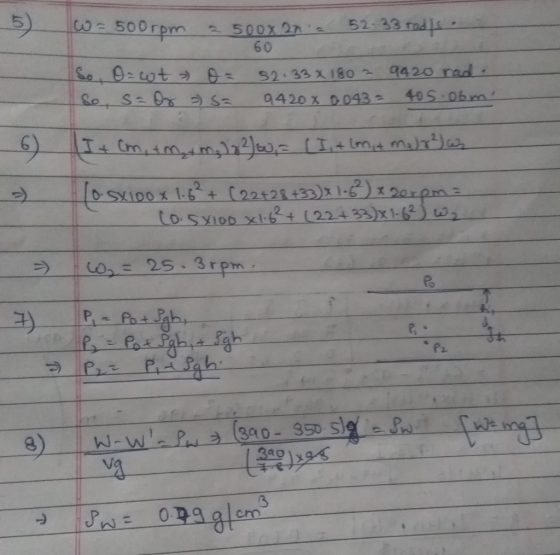 5) ω = 500rpm = 500 x 2π / 60 = 52.33 rad/s.
So, θ = ωt ⇒ θ = 52.33 x 180 = 9420 rad.
So, s = θr ⇒ s = 9420 x 0.043 = 405.06 m.
6) (I + (m₁+m₂+m₃)r²)ω₁ = (I₁ + (m₁+m₂)r²)ω₂
⇒ (0.5x100 x 1.6² + (22+28+33) x 1.6²) x 20rpm =
(0.5 x 100 x 1.6² + (22+33) x 1.6²) ω₂
⇒ ω₂ = 25.3 rpm.
P₀
7) P₁ = P₀ + ρgh₁
h₁
P₂ = P₀ + ρgh₁ + ρgh
P₁ h
⇒ P₂ = P₁ + ρgh.
P₂
8) W - W' / Vg = ρw ⇒ (390 - 350.5)g / (390/7.8) x 9.8 = ρw [W = mg]
⇒ ρw = 0.79 g/cm³